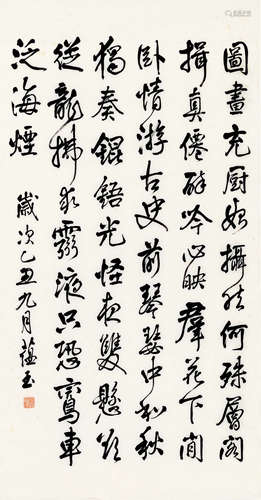 圖畫充厨妙攝何殊層閣
揖真僊醉吟心映羣花下閒
卧情游古史前琴瑟中和秋
獨奏錕鋙光怪夜雙懸欲
從龍拂求液只恐鸞車
泛海煙
歲次乙丑九月蘊玉